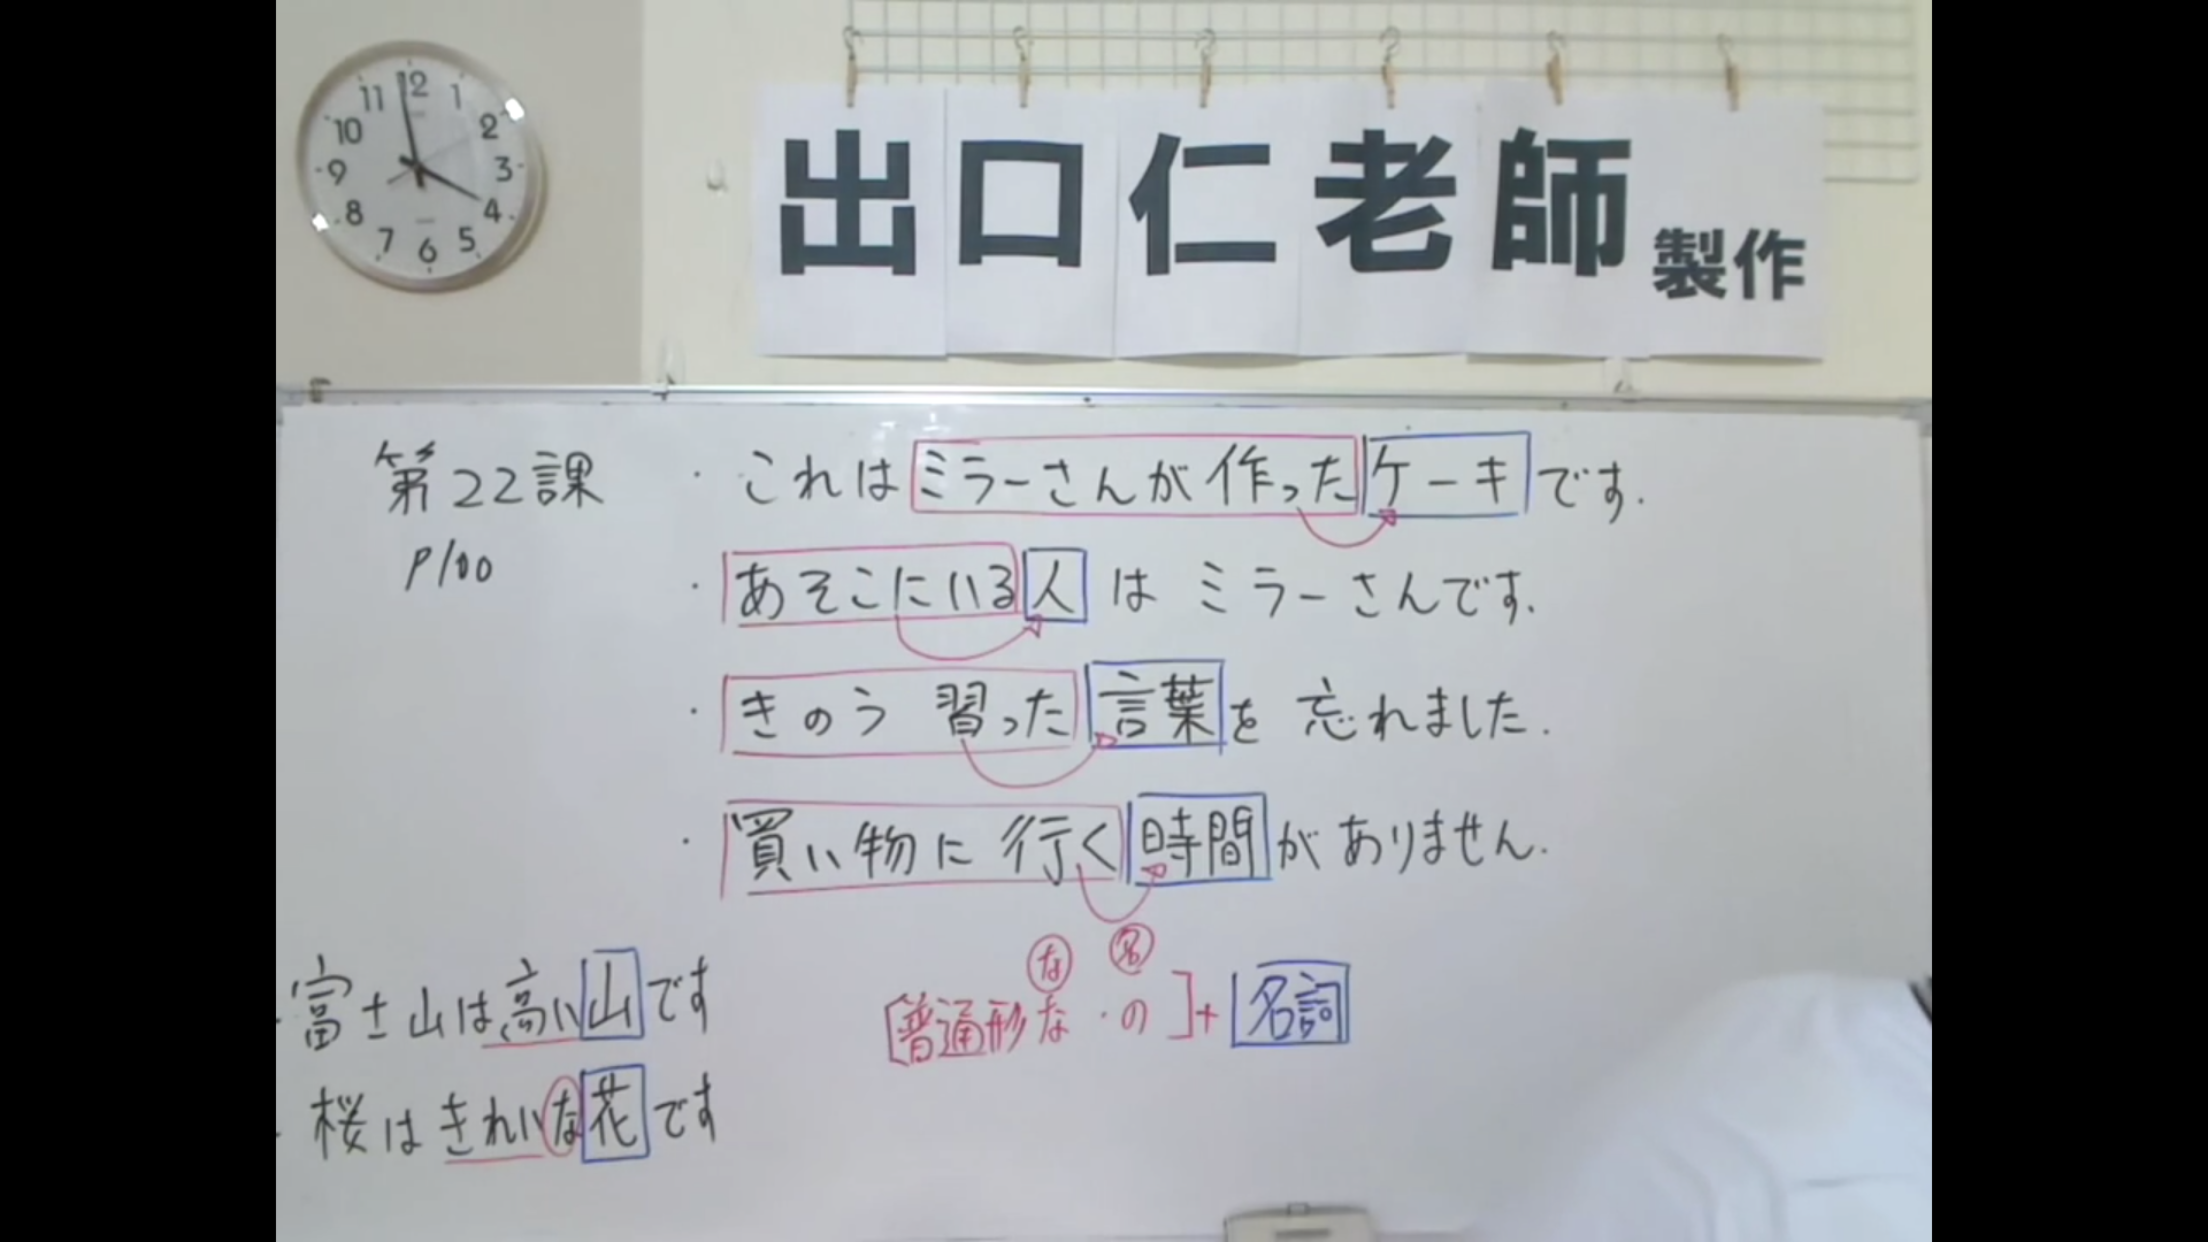 12 1 2 3 4 5 6 7 8 9 10 11
出口仁老師 製作
第22課
P100
・これはミラーさんが作ったケーキです.
・あそこにいる人はミラーさんです.
・きのう習った言葉を忘れました.
・買い物に行く時間がありません.
・富士山は高い山です
・桜はきれいな花です
な 名
[普通形 な・の]+名詞